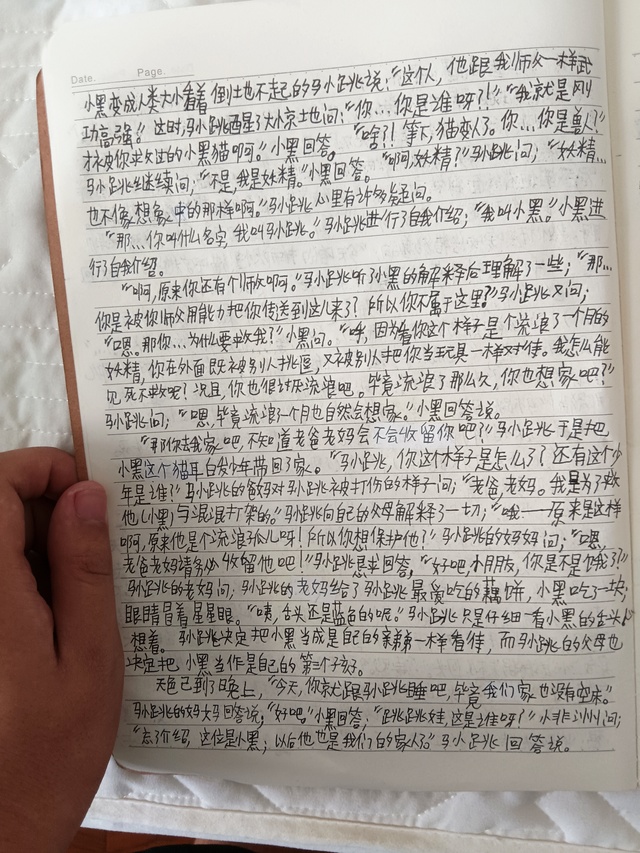 Date. Page.
小黑变成人类大小看着倒土也不起的马小跳说:“这个人,他跟我师父一样武
功高强。”这时,马小跳醒了大小京土也问:“你…你是谁呀?!”“我就是刚
才被你求女过的小黑猫啊。”小黑回答。“啥?!等下,猫变人了。你…你是兽人?”
马小跳继续问;“不是,我是妖精。”小黑回答。“啊,妖精?”马小跳问;“妖精…
也不像想象中的那样啊。”马小跳心里有许多疑问。
“那…你叫什么名字,我叫马小跳。”马小跳进行了自我介绍;“我叫小黑。”小黑进
行了自我介绍。
“啊,原来你还有个师父啊。”马小跳听了小黑的解释后理解了一些;“那…
你是被你师父用能力把你传送到这儿来了?所以你不属于这里?”马小跳又问;
“嗯。那你…为什么要求女我?”小黑问。“呼,因为看你这个样子是个流浪了一个月的
妖精,你在外面既被别人排逼,又被别人把你当玩具一样对待。我怎么能
见死不救呢?况且,你也很讨厌流浪吧。毕竟流浪了那么久,你也想家吧?”
马小跳问;“嗯,毕竟流浪了一个月也自然会想家。”小黑回答说。
“那你去我家吧,不知道老爸老妈会不会收留你吧?”马小跳于是把
小黑这个猫耳白发少年带回了家。“马小跳,你这个样子是怎么了?还有这个少
年是谁?”马小跳的爸妈对马小跳被打伤的样子问;“老爸,老妈。我是为了救
他(小黑)与混混打架的。”马小跳向自己的父母解释了一切;“哦——原来是这样
啊,原来他是个流浪孤儿呀!所以你想保护他?”马小跳的妈妈问;“嗯,
老爸老妈请务必收留他吧!”马小跳恳求回答,“好吧,小朋友,你是不是饿了?”
马小跳的老妈问;马小跳的老妈给了马小跳最爱吃的藕饼,小黑吃了一块,
眼睛冒着星星眼。“咦,舌头还是蓝色的呢。”马小跳只是仔细一看小黑的舌头
想着。马小跳决定把小黑当成是自己的亲弟弟一样看待,而马小跳的父母也
决定把小黑当作是自己的第三个孩子。
天色已到了晚上,“今天,你就跟马小跳睡吧,毕竟我们家也没有空床。”
马小跳的妈妈回答说;“好吧。”小黑回答;“跳跳娃,这是谁呀?”小非洲问;
“忘了介绍,这位是小黑;以后他也是我们的家人了。”马小跳回答说。